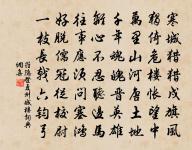 寒城獵獵戍旗風
獨倚危樓悵望中
萬里山河唐土地
千年魂魄晉英雄
離心不忍聽邊馬
往事應須問塞鴻
好脫儒冠從校尉
一枝長戟六鈞弓
羅隱登夏州城樓詞典
網